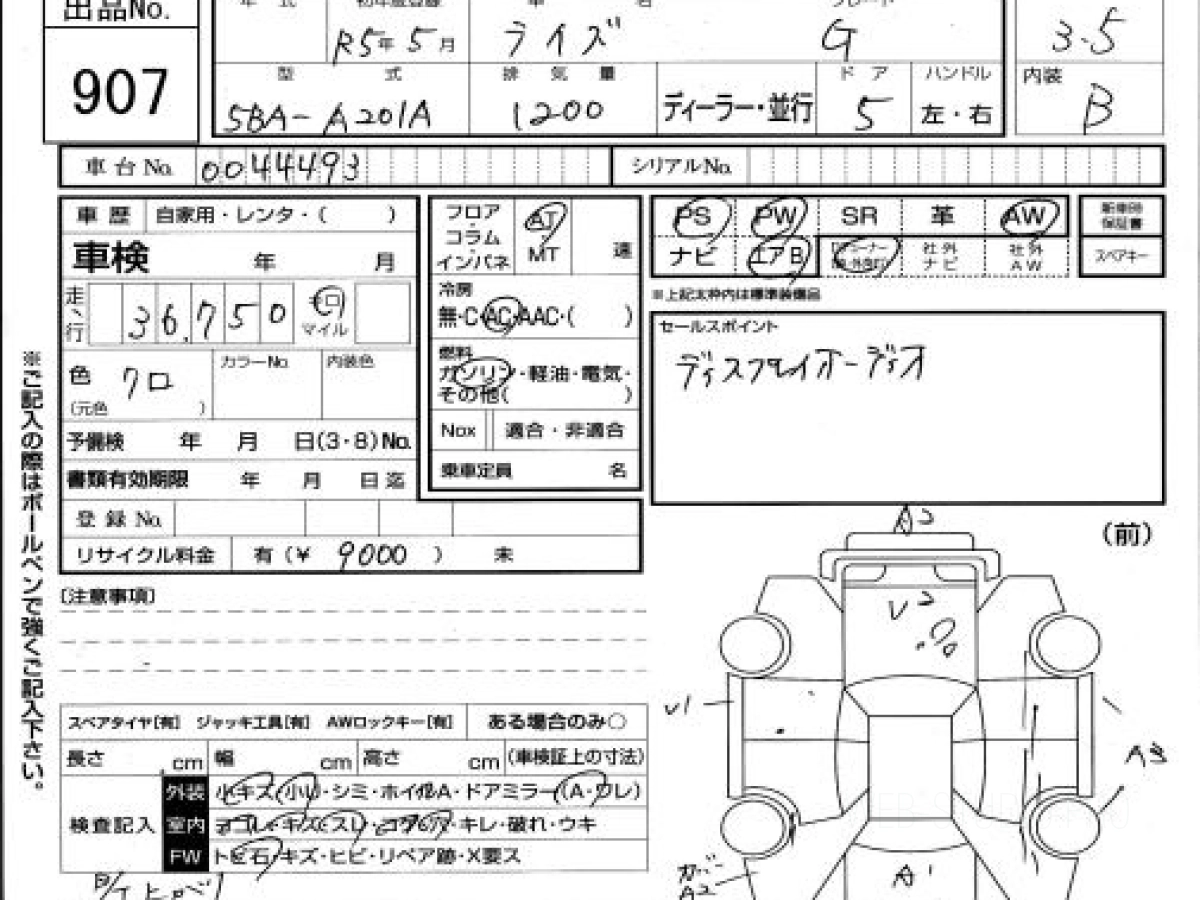 出品No.
907
年 式 初年度登録 車 名 グレード
R5年 5月 ライズ G 3.5
型 式 排 気 量 ドア ハンドル 内装
5BA-A201A 1200 ディーラー・並行 5 左・右 B
車台No. 0044493 シリアルNo.
車歴 自家用・レンタ・( )
車検 年 月
走行 36,750 キロ マイル
色 クロ
(元色 )
カラーNo. 内装色
予備検 年 月 日(3・8)No.
書類有効期限 年 月 日迄
登録No.
リサイクル料金 有(¥ 9000 ) 未
フロア・
コラム・
インパネ
AT
MT
速
冷房
無・C・AC・AAC・( )
燃料
ガソリン・軽油・電気・
その他( )
Nox 適合・非適合
乗車定員 名
PS PW SR 革 AW
ナビ エアB 社外ナビ 社外AW
新車時保証書
スペアキー
※上記太枠内は標準装備品
セールスポイント
ディスプレイオーディオ
※ご記入の際はボールペンで強くご記入下さい。
〔注意事項〕
スペアタイヤ[有] ジャッキ工具[有] AWロックキー[有] ある場合のみ○
長さ cm 幅 cm 高さ cm (車検証上の寸法)
検査記入
外装 小キズ・小U・シミ・ホイルA・ドアミラー(A・ワレ)
室内 ヨゴレ・キズ・スレ・コゲ・アナ・キレ・破れ・ウキ
FW トビ石・キズ・ヒビ・リペア跡・X要ス
(前)
A2
V2
V1
A3
カバー
A2
A1